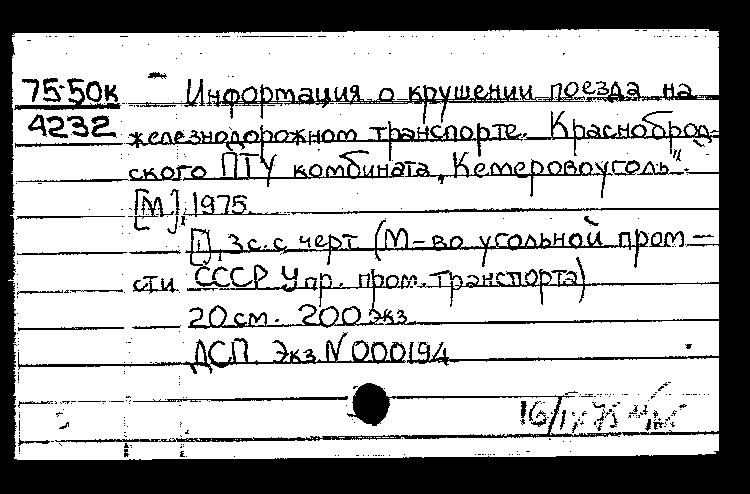 75-50к
4232
Информация о крушении поезда на
железнодорожном транспорте. Краснобродского
ского ПТУ комбината „Кемеровоуголь".
[М.], 1975.
[1], 3 с. с черт (М-во угольной пром-
сти СССР Упр. пром. транспорта)
20 см. 200 экз
ДСП. Экз N 000194
16/IX 75